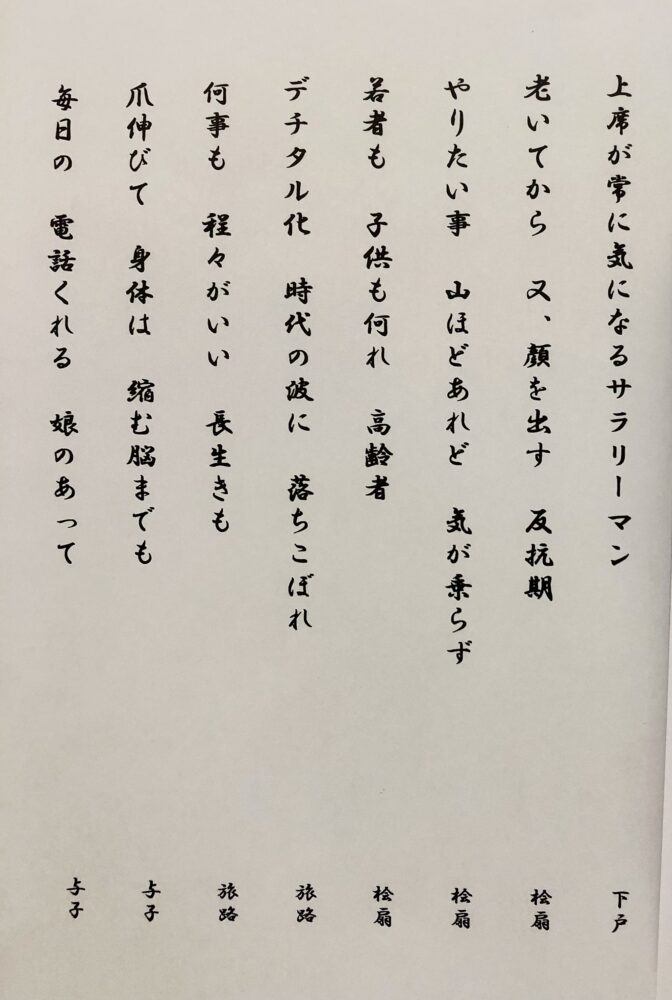 上席が常に気になるサラリーマン 下戸
老いてから 又、顔を出す 反抗期 桧扇
やりたい事 山ほどあれど 気が乗らず 桧扇
若者も 子供も何れ 高齢者 桧扇
デチタル化 時代の波に 落ちこぼれ 旅路
何事も 程々がいい 長生きも 旅路
爪伸びて 身体は 縮む脳までも 与子
毎日の 電話くれる 娘のあって 与子